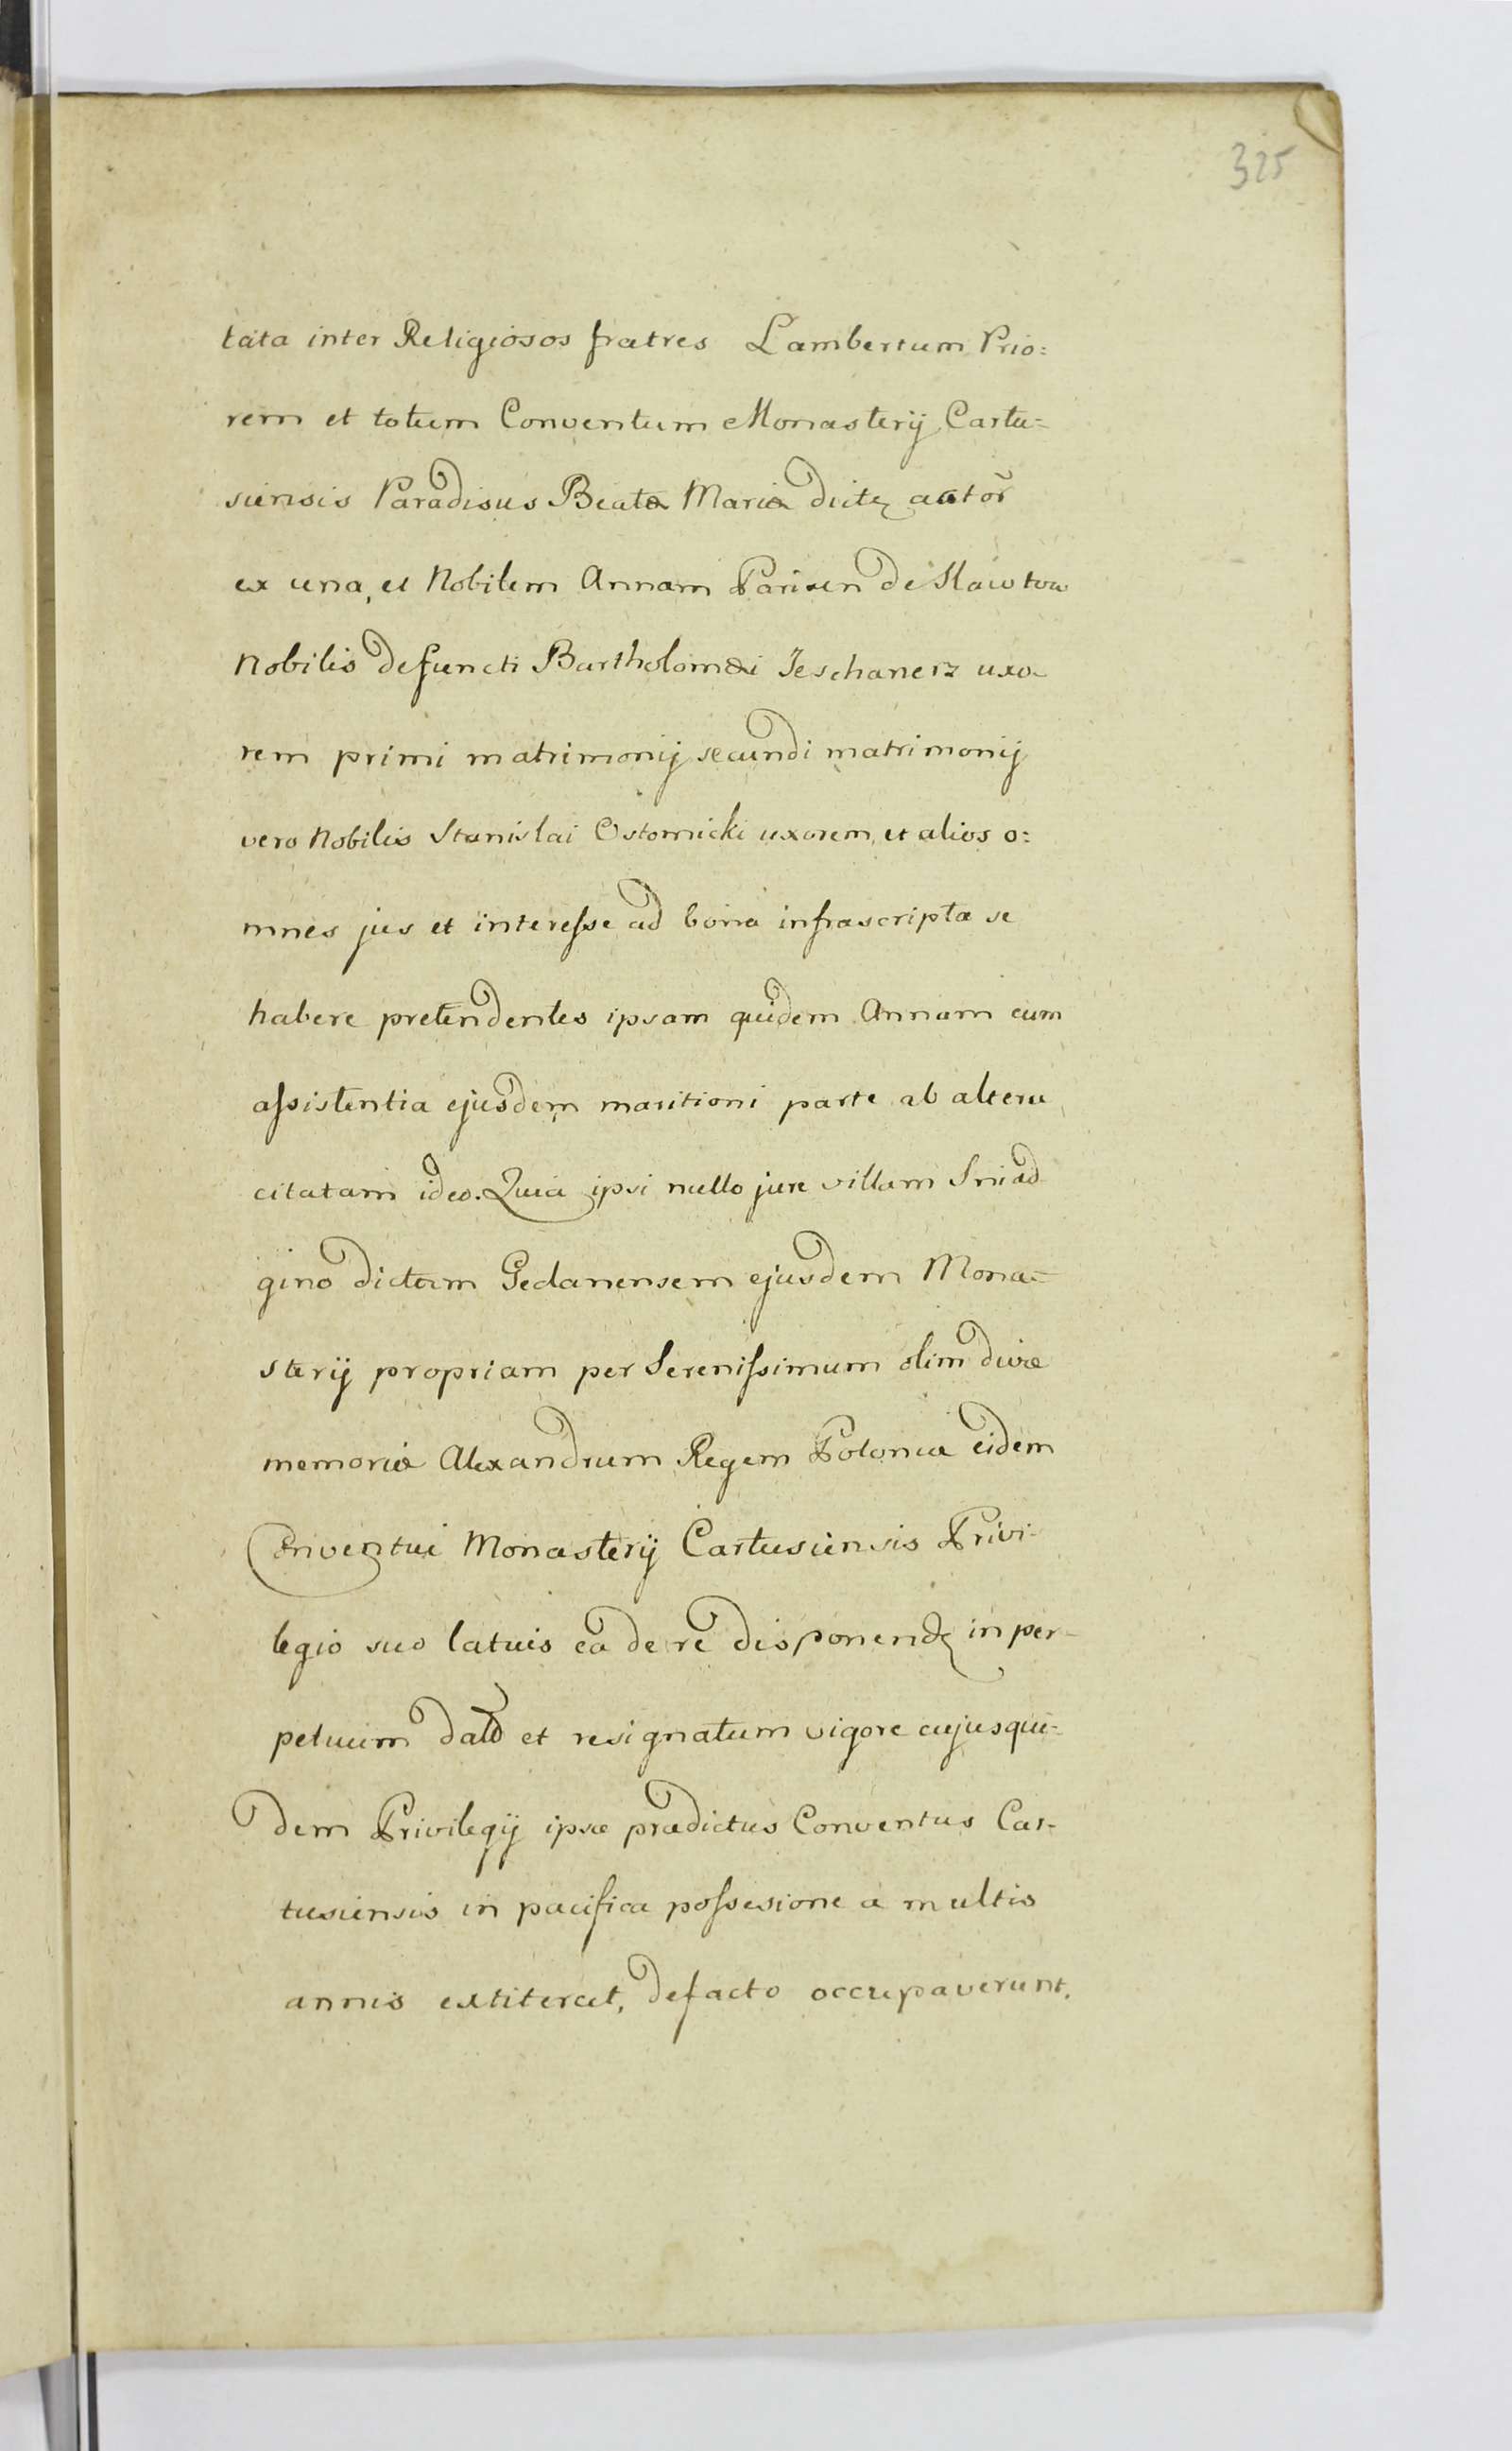 325
tata inter Religiosos fratres Lambertum Prio:
rem et totum Conventum Monasterij Cartu=
siensis Paradisus Beatæ Mariæ dictę actor̄
ex una, et Nobilem Annam Parisen de
Nobilis defuncti Bartholomæi Jeschanerz uxo-
rem primi matrimonij secundi matrimonij
vero Nobilis Stanislai Ostornicki uxorem, et alios o:
mnes jus et interesse ad bona infrascripta se
habere pretendentes ipsam quidem Annam cum
assistentia ejusdem maritioni parte ab altera
citatam ideo. Quia ipsi nullo jure villam Sniad
gino dictam Gedanensem ejusdem Mona=
sterij propriam per Serenissimum olim divæ
memoriæ Alexandrum Regem Poloniæ eidem
Conventui Monasterij Cartusiensis Privi-
legio suo latuis ea de re disponend in per-
petuum dat et resignatum vigore cujusqui-
dem Privilegij ipse prædictus Conventus Car-
tusiensis in pacifica possesione a multis
annis extiterat, defacto occupaverunt,